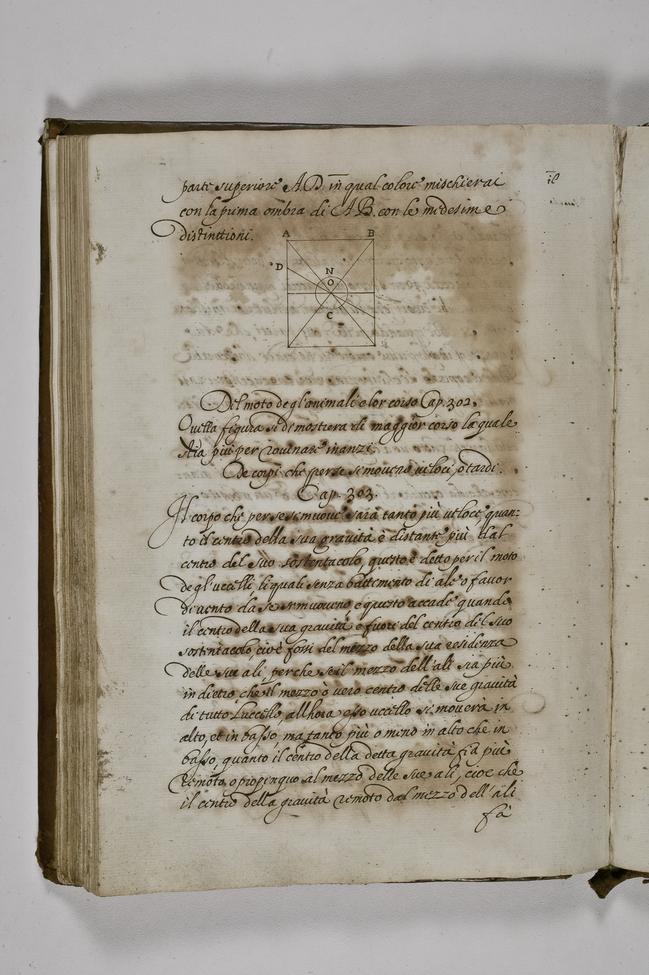 parte superiore A.D. in qual colore mischierai
con la prima ombra di A B. con le medesime
distintioni.
A B
D
N
O
C
Del moto degl'animali e lor corso Cap. 302.
Quella figura si dimostrerà di maggior corso la quale
stia più per rovinare inanzi.
De corpi che per se si moveno veloci, o tardi.
Cap. 303.
Il corpo che per se si muove sarà tanto più veloce quan:
to il centro della sua gravità è distante più dal
centro del suo sostentacolo, questo è detto per il moto
degl'uccelli, li quali senza battimento di ale o favor
di vento da se si muoveno e questo accade quando
il centro della sua gravità è fuori del centro del suo
sostentacolo, cioè fori del mezzo della sua residenza
delle sue ali, perche se il mezzo dell'ali sia più
in dietro, che il mezzo ò vero centro delle sue gravità
di tutto l'uccello, allhora esso uccello si moverà in
alto, et in basso, ma tanto più o meno in alto che in
basso, quanto il centro della detta gravità sia più
remoto, o propinquo al mezzo delle sue ali, cioè che
il centro della gravità remoto dal mezzo dell'ali
fà
il